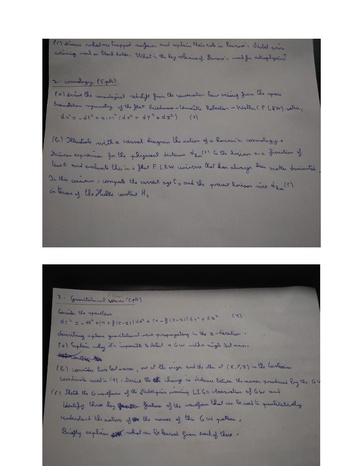 (c) Discuss what are trapped surfaces and explain their role in Penrose's
winning work on black holes. What is the key relevance of Penrose's work for astrophysics?
2. Cosmology (5 pts)
(a) Derive the cosmological redshift from the conservation law arising from the space
translation symmetry of the flat Friedmann-Lemaitre-Robertson-Walker (FLRW) metric,
ds² = -dt² + a(t)² (dx² + dy² + dz²) (1)
(b) Illustrate with a causal diagram the notion of a horizon in cosmology.
Derive an expression for the physical distance d_hor(t) to the horizon as a function of
time t and evaluate this in a flat FLRW universe that has always been matter dominated.
In this universe, compute the current age t₀ and the present horizon size d_hor(t)
in terms of the Hubble constant H₀
3. Gravitational waves (5 pts)
Consider the spacetime
ds² = -dt² + (1 + f(t-z)) dx² + (1 - f(t-z)) dy² + dz² (2)
describing a plane gravitational wave propagating in the z-direction.
(a) Explain why it's impossible to detect a GW with a single test mass.
(b) Consider two test masses, one at the origin and the other at (X,Y,0) in the
coordinates used in (2). Derive the change in distance between the masses produced by the GW
(c) Sketch the GW waveform of the Nobelprize winning LIGO observation of GW and
identify three key features of the waveform that can be used to quantitatively
understand the nature of the source of this GW pattern.
Briefly explain what can be learned from each of these.